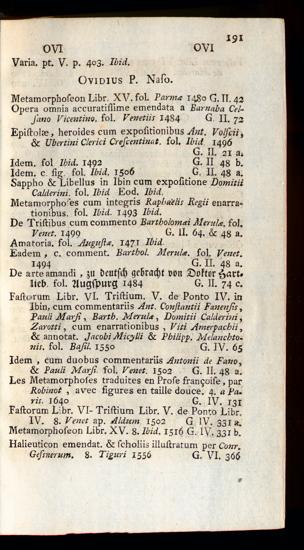 191
OVI OVI
Varia. pt. V. p. 403. Ibid.
OVIDIUS P. Naſo.
Metamorphoſeon Libr. XV. fol. Parmæ 1480 G. II. 42
Opera omnia accuratiſſime emendata a Barnaba Cel-
ſano Vicentino. fol. Venetiis 1484 G. II. 72
Epiſtolæ, heroides cum expoſitionibus Ant. Volſcii,
& Ubertini Clerici Creſcentinat. fol. Ibid. 1496
G. II. 21 a.
Idem. fol Ibid. 1492 G. II 48 b.
Idem. c. fig. fol. Ibid. 1506 G. II. 48 a.
Sappho & Libellus in Ibin cum expoſitione Domitii
Calderini. fol. Ibid Eod. Ibid.
Metamorphoſes cum integris Raphaëlis Regii enarra-
tionibus. fol. Ibid. 1493 Ibid.
De Triſtibus cum commento Bartholomæi Merulæ. fol.
Venet. 1499 G. II. 64. & 48 a.
Amatoria. fol. Auguſtæ, 1471 Ibid.
Eadem, c. comment. Barthol. Merulæ. fol. Venet.
1494 G. II. 48 a.
De arte amandi, zu deutſch gebracht von Doktor Hart-
lieb. fol. Augſpurg 1484 G. II. 74 c.
Faſtorum Libr. VI. Triſtium. V. de Ponto IV. in
Ibin, cum commentariis Ant. Conſtantii Fanenſis,
Pauli Marſi, Barth. Merulæ, Domitii Calderini,
Zarotti, cum enarrationibus, Viti Amerpachii,
& annotat. Jacobi Micylli & Philipp. Melanchto-
nis. fol. Baſil. 1550 G. IV. 65
Idem, cum duobus commentariis Antonii de Fano,
& Pauli Marſi. fol. Venet. 1502 G. II. 48 a.
Les Metamorphoſes traduites en Proſe françoiſe, par
Robinot, avec figures en taille douce. 4. a Pa-
ris. 1640 G. IV. 131
Faſtorum Libr. VI- Triſtium Libr. V. de Ponto Libr.
IV. 8. Venet ap. Aldum 1502 G. IV. 331 a.
Metamorphoſeon Libr. XV. 8. Ibid. 1516 G. IV. 331 b.
Halieuticon emendat. & ſcholiis illuſtratum per Conr.
Geſnerum. 8. Tiguri 1556 G. VI. 366